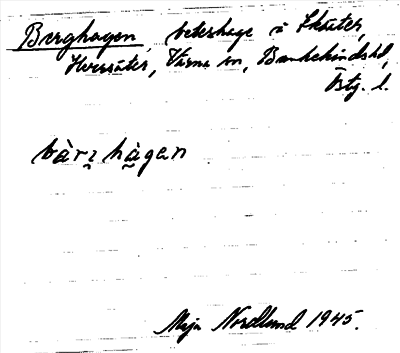 Berghagen, beteshage i Skäter,
Värna sn, Bankekinds hd,
Östg. l.
bàrʒ hàgan
Maja Nordlund 1945.